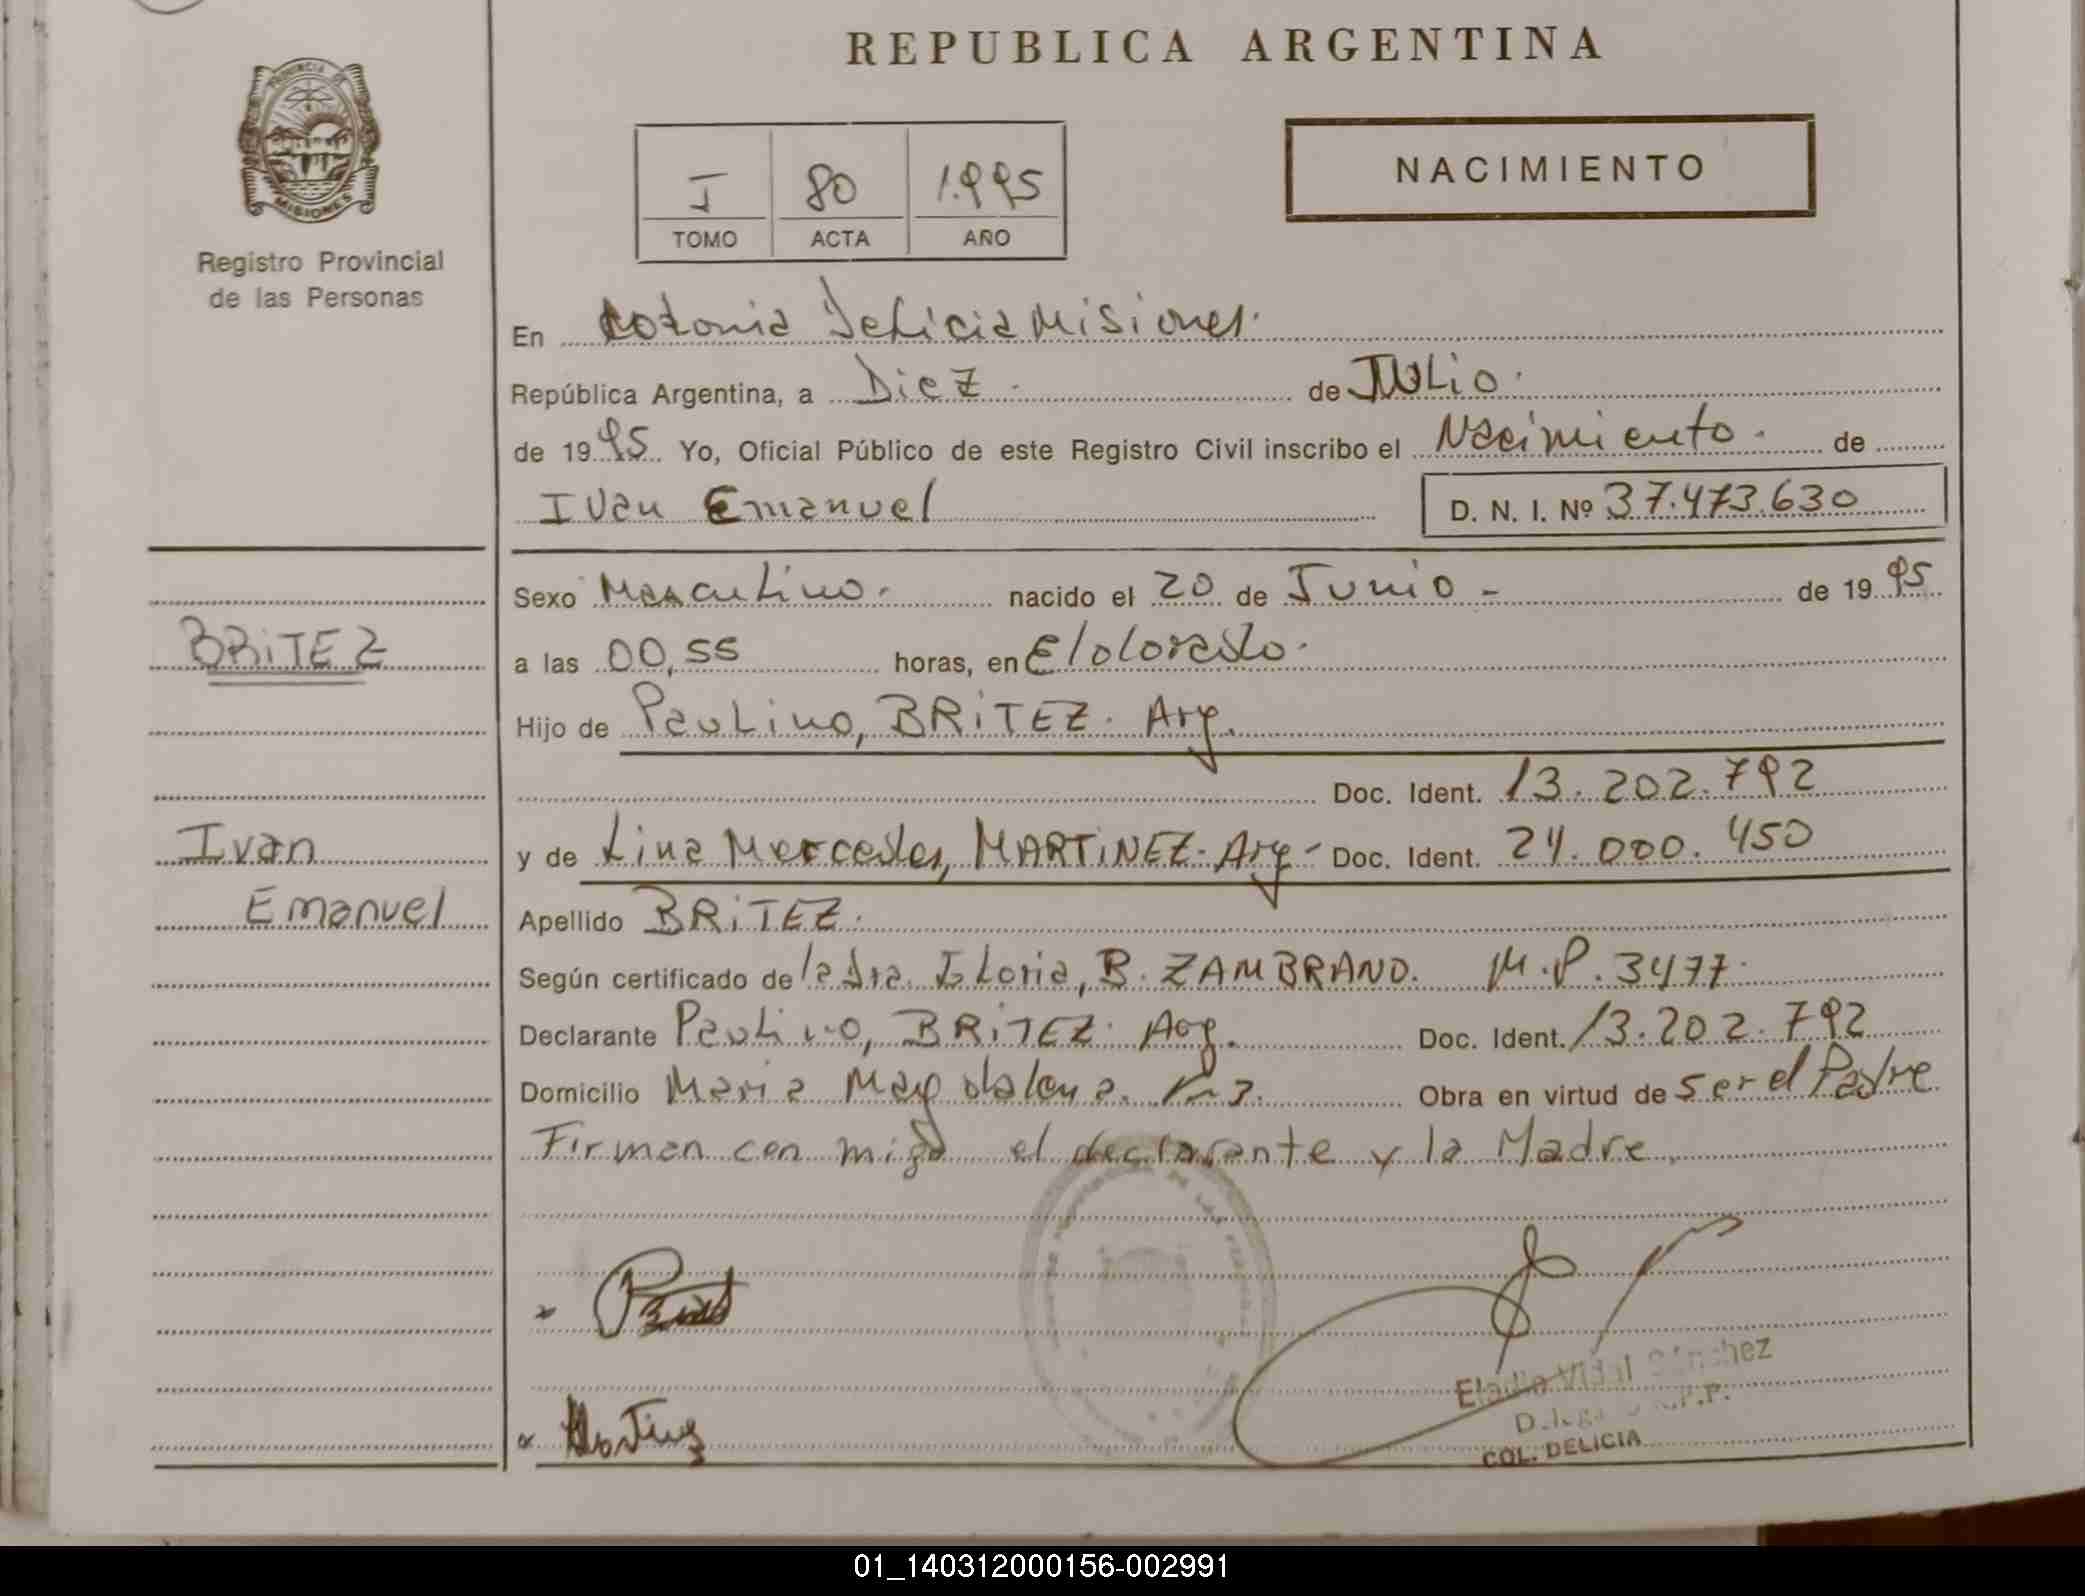 REPUBLICA ARGENTINA
PROVINCIA DE
MISIONES
Registro Provincial
de las Personas
I 80 1.995
TOMO ACTA AÑO
NACIMIENTO
En Colonia Delicia Misiones.
República Argentina, a Diez. de JULio.
de 1995 Yo, Oficial Público de este Registro Civil inscribo el Nacimiento. de
Ivan Emanuel D. N. I. Nº 37.473.630
Sexo Masculino. nacido el 20 de Junio - de 1995
BRiTEZ
a las 00,55 horas, en Eldorado.
Hijo de Paulino, BRiTEZ. Arg.
Doc. Ident. 13.202.792
Ivan
y de Lina Mercedes, MARTiNEZ. Arg- Doc. Ident. 24.000.450
Emanuel
Apellido BRiTEZ.
Según certificado de la dra. Gloria, B. ZAMBRANO. M.P. 3477.
Declarante Paulino, BRiTEZ. Arg. Doc. Ident. 13.202.792
Domicilio Maria Magdalena. Obra en virtud de ser el Padre
Firman con migo el declarante y la Madre.
Eladio Vidal Sánchez
COL. DELICIA
01_140312000156-002991